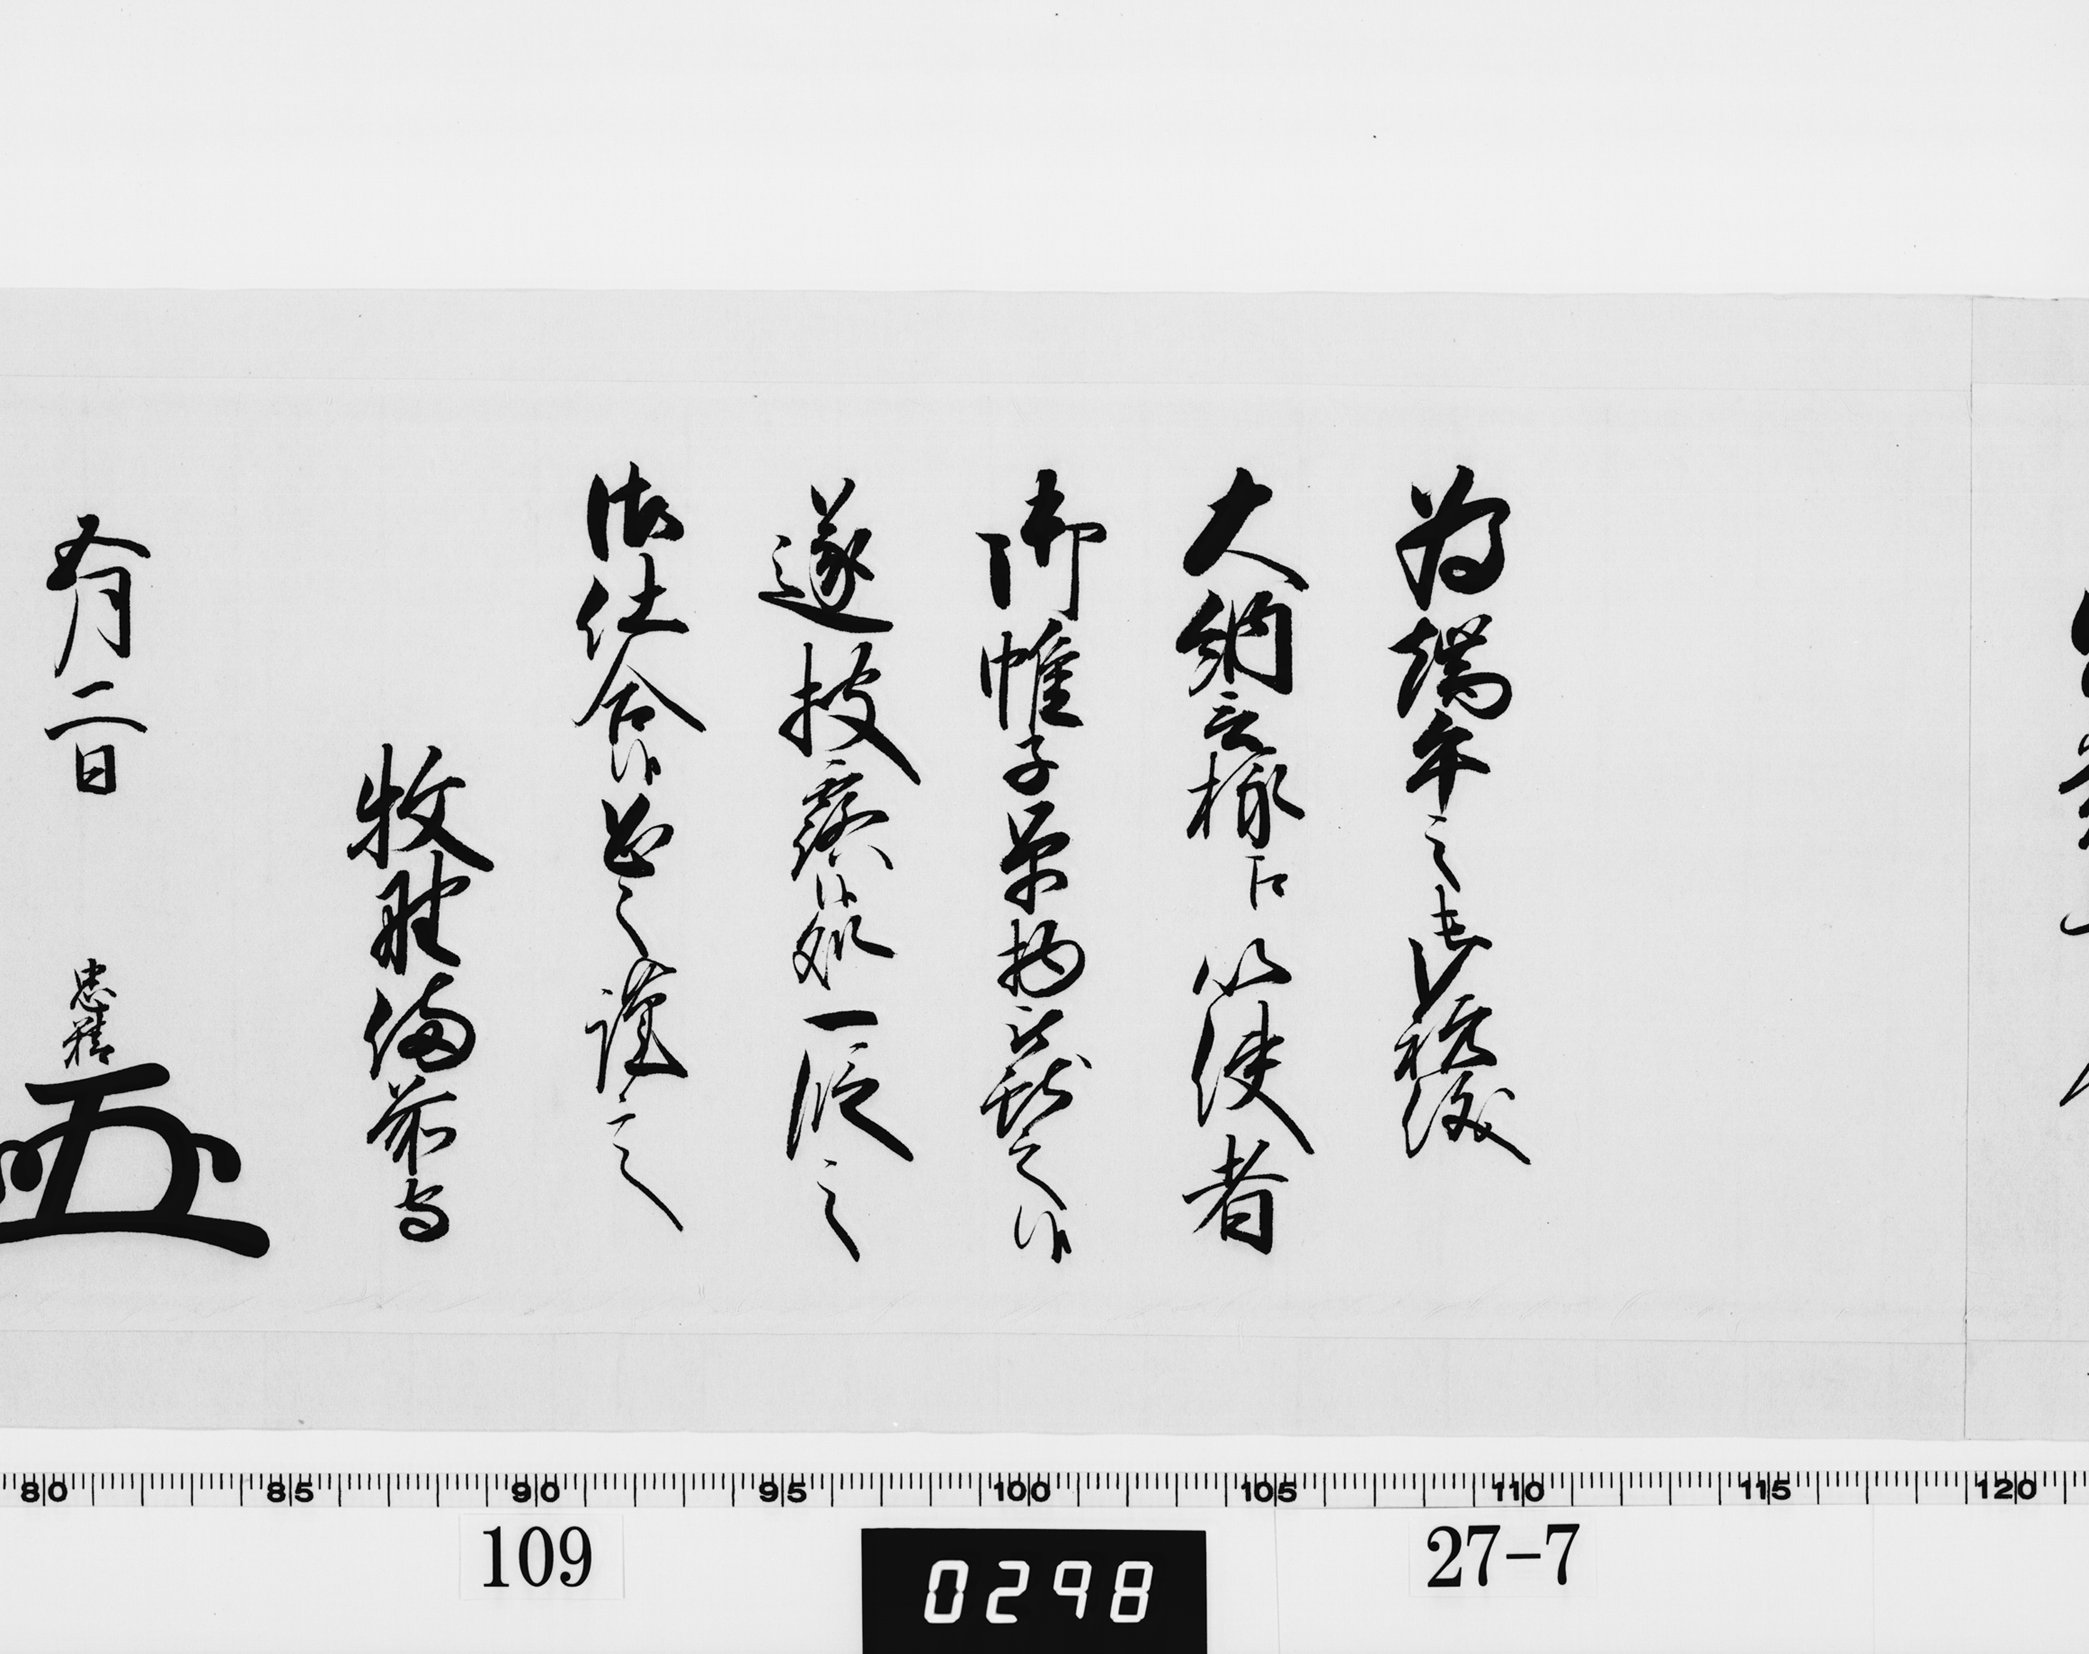 為端午之御祝儀
大納言様江以使者
御帷子単物被献之候
遂披露候処一段之
御仕合候恐々謹言
牧野備前守
五月二日
忠精
80 85 90 95 100 105 110 115 120
109
0298
27-7